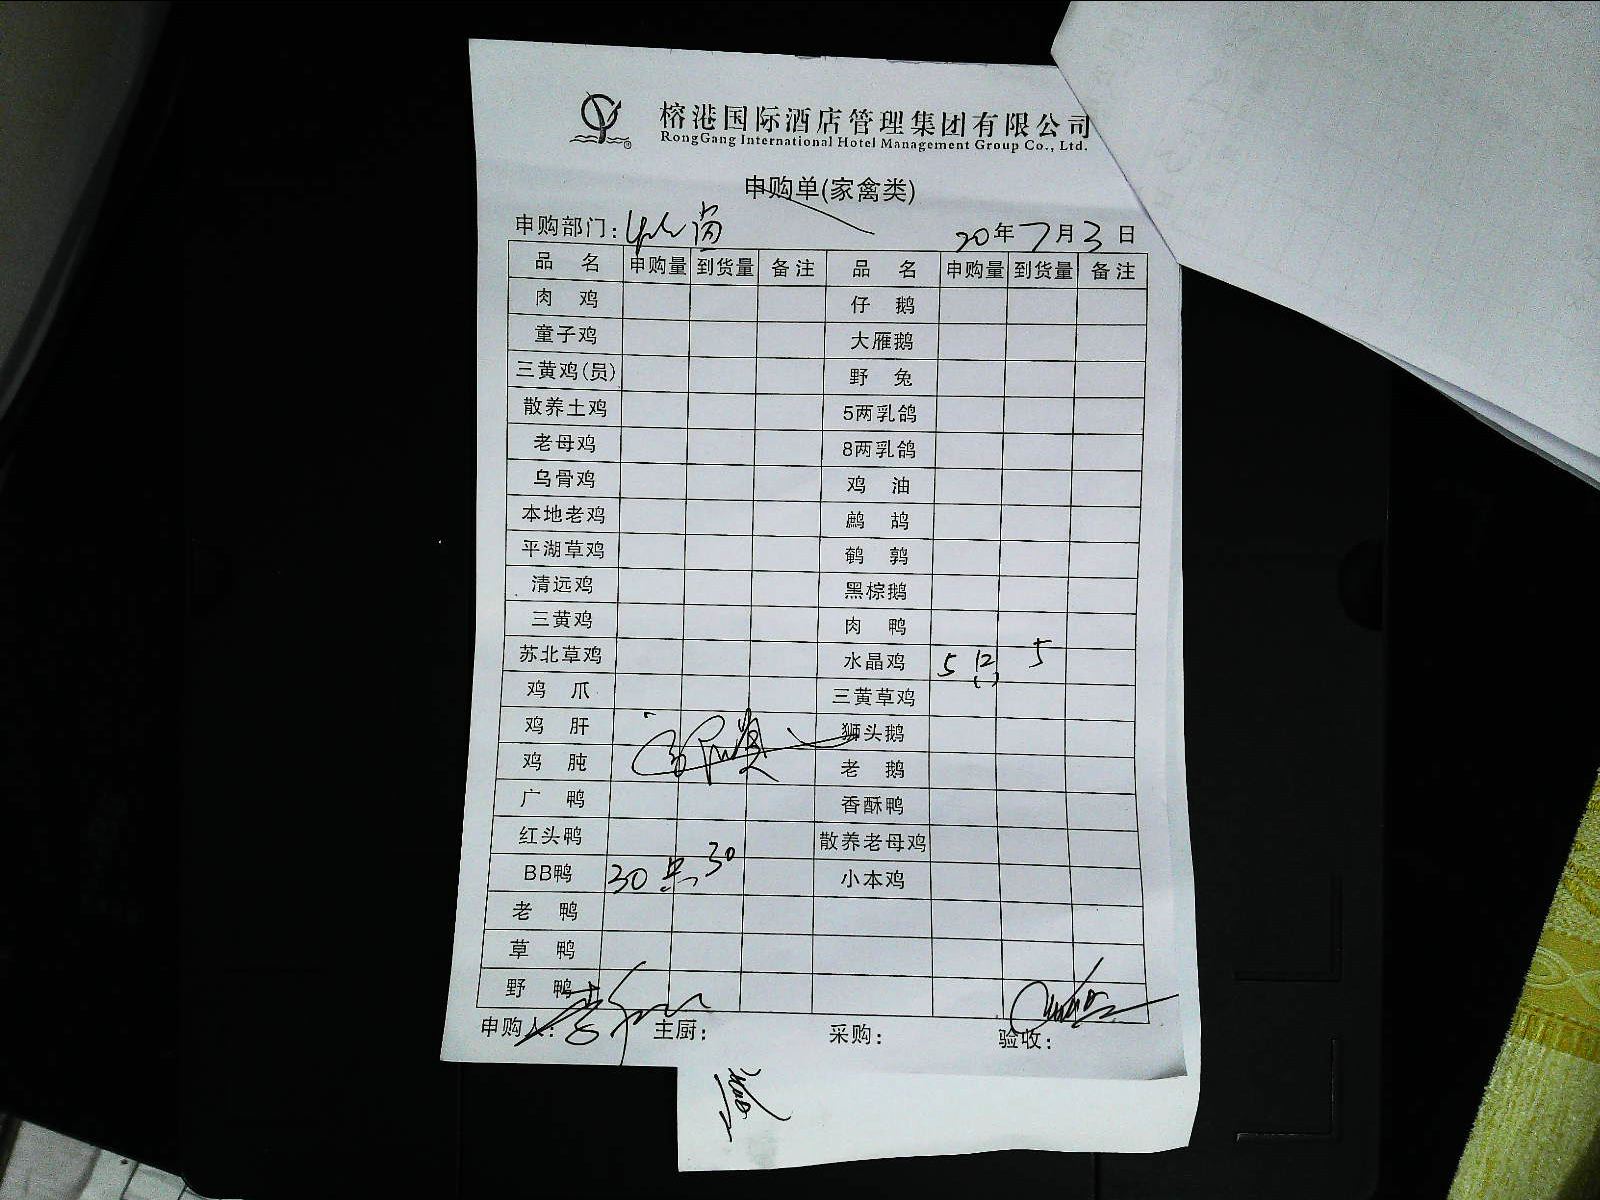 榕港国际酒店管理集团有限公司
RongGang International Hotel Management Group Co., Ltd.
申购单(家禽类)
申购部门: 20年7月3日
品 名 申购量 到货量 备注 品 名 申购量 到货量 备注
肉 鸡 仔 鹅
童子鸡 大雁鹅
三黄鸡(员) 野 兔
散养土鸡 5两乳鸽
老母鸡 8两乳鸽
乌骨鸡 鸡 油
本地老鸡 鹧 鸪
平湖草鸡 鹌 鹑
清远鸡 黑棕鹅
三黄鸡 肉 鸭
苏北草鸡 水晶鸡 5只 5
鸡 爪 三黄草鸡
鸡 肝 狮头鹅
鸡 肫 老 鹅
广 鸭 香酥鸭
红头鸭 散养老母鸡
BB鸭 30只 30 小本鸡
老 鸭
草 鸭
野 鸭
申购人: 主厨: 采购: 验收: